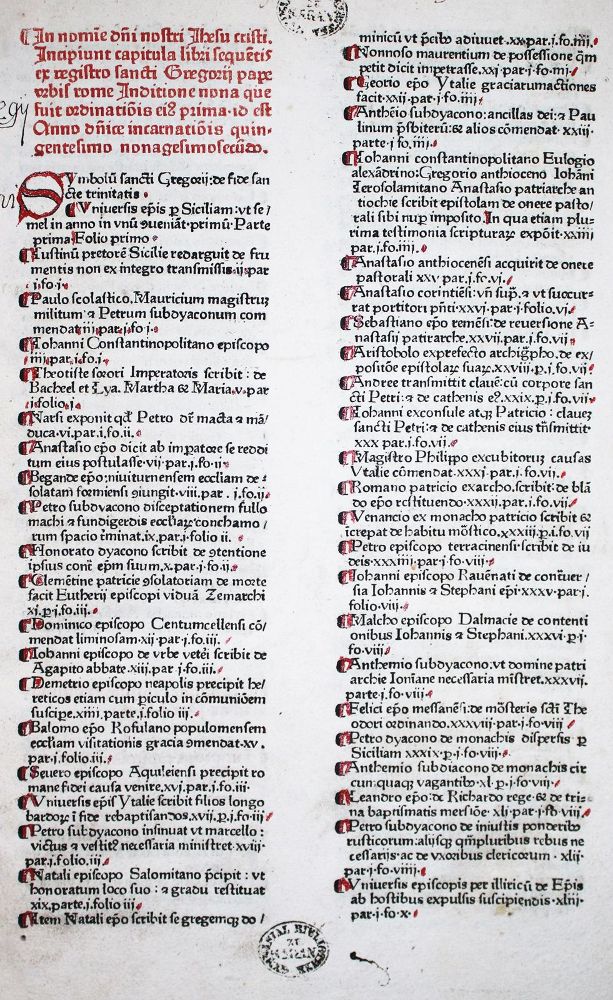 In nomie dñi nostri Jhesu cristi.
Incipiunt capitula libri sequẽtis
ex registro sancti Gregorij pape
vrbis rome Inditione nona que
fuit ordinatiõis ei9 prima·id est
Anno dñice incarnatiõis quin-
gentesimo nonagesimosecũdo.
Symbolũ sancti Gregorij: de fide san
cte trinitatis
Vniuersis epĩs ꝑ Siciliam: vt se/
mel in anno in vnũ ꝯueniãt·primũ·Parte
prima·Folio primo
Iustinũ pretorẽ Sicilie redarguit de fru
mentis non ex integro transmissis·ij·par
i·fo·i·
Paulo scolastico. Mauricium magistruꝫ
militum ⁊ Petrum subdyaconum com
mendat iij·par·i·fo·i·
Iohanni Constantinopolitano episcopo
iiij·par·i·fo·i·
Theotiste sorori Imperatoris scribit: de
Rachel et Lya. Martha ⁊ Maria·v·par
i·folio·i·
Narsi exponit qđ Petro dr̃ macta ⁊ mã/
duca·vi·par·i·fo·ii.
Anastasio ep̃o dicit ab imp̃atore se reddi
tum eius postulasse·vij·par·i·fo·ij·
Begande ep̃o: miuiturnensem eccliam de-
solatam formiensi ꝯiungit·viij.par·i.fo.ij
Petro subdyacono disceptationem fullo
machi ⁊ fundigerdis eccliaꝝ: conchamo/
rum spacio t̃minat.ix.par·i·folio ii.
Honorato dyacono scribit de ꝯtentione
ipsius contr̃ ep̃m suum.x.par.i.fo.ij.
Clemẽtine patricie ꝯsolatoriam de morte
facit Eutherij episcopi viduã Zemarchi
xi.ꝑ.i.fo.iij.
Dominico episcopo Centumcellensi cõ/
mendat liminosam·xij·par·i·fo.iij.
Iohanni episcopo de vrbe veteri scribit de
Agapito abbate.xiij.par·i·fo.iij.
Demetrio episcopo neapolis precipit he/
reticos etiam cum piculo in cõmuniõem
suscipe.xiiij.parte.i.folio iij.
Balomo ep̃o Rofulano populomensem
eccliam visitationis gracia ꝯmendat·xv.
par.i.folio.iij.
Seuero episcopo Aquileiensi precipit ro
mane fidei causa venire.xvj.par.i.fo.iij.
Vniuersis ep̃is Ytalie scribit filios longo
bardoꝝ ĩ fide rebaptisandos.xvij.ꝑ.i·fo iij
Petro subdyacono insinuat vt marcello:
victus ⁊ vestit9 necessaria ministret·xviij·
par.i.folio.iij
Natali episcopo Salomitano p̃cipit: vt
honoratum loco suo: ⁊ gradu restituat
xix.parte.i.folio iij
Item Natali ep̃o scribit se gregemqꝫ do/
minicũ vt p̃cibꝫ adiuuet.xx.par.i.fo.iiij.
Nonnoso maurentium de possessione q̃m
petit dicit impetrasse.xxj·par·i·fo·iiij·
Georio ep̃o Ytalie graciarumactiones
facit.xxij·par·i·fo.iiij.
Antheio subdyacono: ancillas dei: ⁊ Pau
linum p̃sbiterũ: ⁊ alios cõmendat·xxiij.
parte·i.fo.iiij.
Iohanni constantinopolitano Eulogio
alexãdrino: Gregorio anthioceno Iohãni
Ierosolamitano Anastasio patriarche an
tiochie scribit epistolam de onere pasto/
rali sibi nuꝑ imposito. In qua etiam plu-
rima testimonia scripturaꝝ expõit·xxiiij
par.i.fo.iiij.
Anastasio anthiocẽsi acquirit de onere
pastorali xxv par.i.fe.vi.
Anastasio corintiẽsi: vñ sup̃. ⁊ vt succur-
rat portitori p̃nti·xxvj·par·i·folio.vj
Sebastiano ep̃o remẽsi: de reuersione A-
nastasij patirarche.xxvij.par.i.fo.vij
Aristobolo exprefecto archig̃pho. de ex/
positõe epistolaꝝ suaꝝ.xxviij.ꝑ.i.fo.vij
Andree transmittit clauẽ: cũ corpore san
cti Petri: ⁊ de cathenis e9.xxix.ꝑ.i.fo.vij
Iohanni exconsule atqꝫ Patricio: claueꝫ
sancti Petri: ⁊ de cathenis eius tñsmittit·
xxx par.i.fo.vij.
Magistro Philippo excubitoruꝫ causas
Ytalie cõmendat.xxxi·par.i.fo.vij.
Romano patricio exarcho.scribit: de blã
do ep̃o restituendo·xxxij.par.i.fo.vij
Venancio ex monacho patricio scribit ⁊
icrepat de habitu mõstico.xxxiij.ꝑ.i.fo.vij
Petro episcopo terracinensi·scribit de iu
deis·xxxiiij·par·i·fo·viij·
Iohanni episcopo Rauẽnati de contr̃uer/
sia Iohannis ⁊ Stephani ep̃i·xxxv·par·i.
folio·viij·
Malcho episcopo Dalmacie de contenti
onibus Iohannis ⁊ Stephani.xxxvi·ꝑ·i·
fo·viij·
Anthemio subdyacono.vt domine patri
archie Ioniane necessaria mĩstret.xxxvij.
parte·i·fo·viij·
Felici ep̃o messanẽsi: de mõsterio sc̃ti The
odori ordinando.xxxviij·par·i·fo·viij
Petro dyacono de monachis dispersis ꝑ
Siciliam xxxix·ꝑ·i·fo·viij·
Anthemio subdiacono de monachis cir
cumquaqꝫ vagantibꝫ·xl·ꝑ·i·fo·viij·
Leandro ep̃o: de Richardo rege ⁊ de tri-
na baptismatis mersiõe·xli·par·i·fo·viij·
Petro subdyacono de iniustis ponderibꝫ
rusticorum: alijsqꝫ q̃mpluribus rebus ne
cessarijs·ac de vxoribus clericorum·xlij·
par·i·fo·viiij·
Vniuersis episcopis per illiricũ de Ep̃is
ab hostibus expulsis suscipiendis·xliij·
par·i·fo·x·